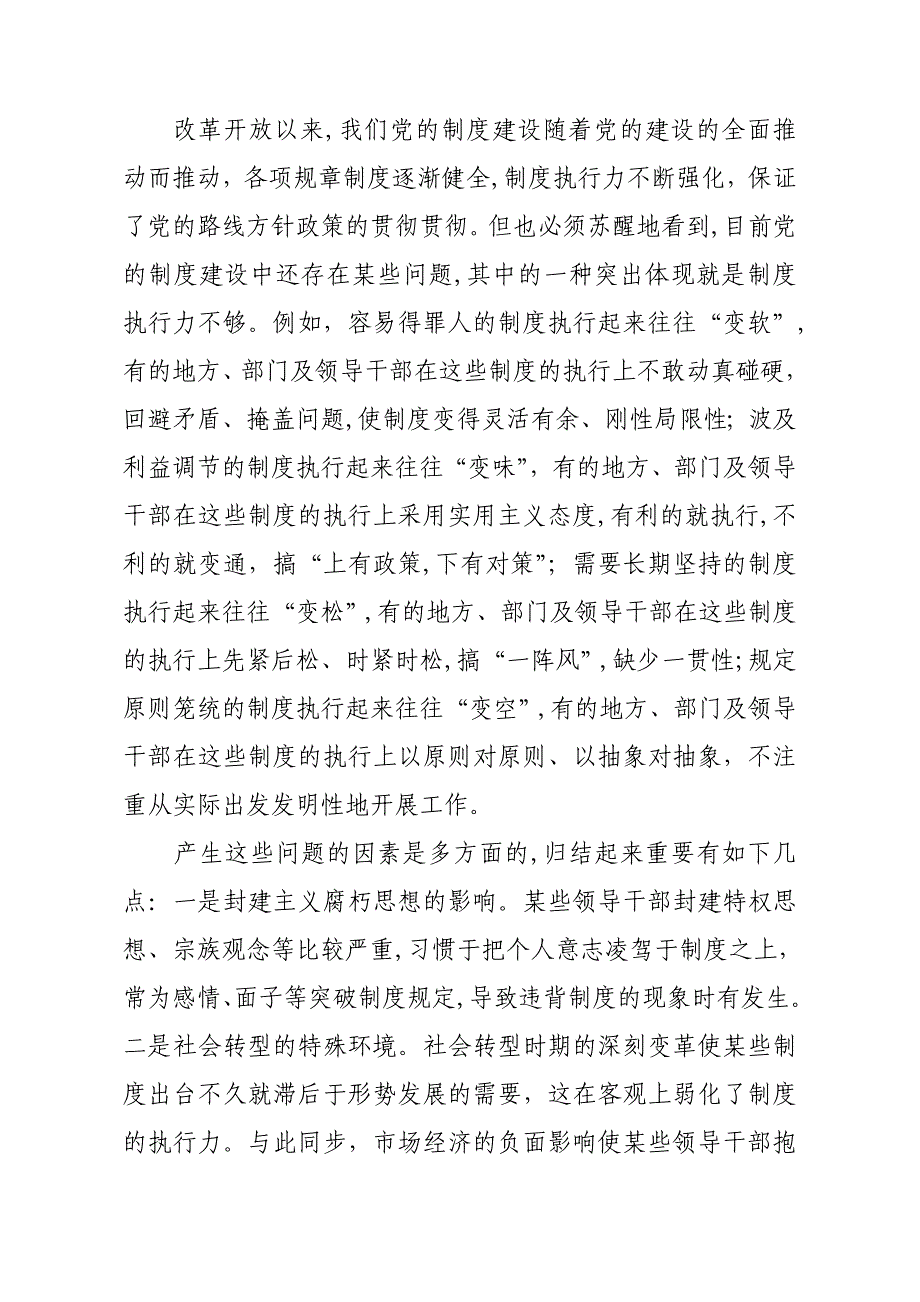 改革开放以来,我们党的制度建设随着党的建设的全面推
动而推动，各项规章制度逐渐健全,制度执行力不断强化，保证
了党的路线方针政策的贯彻贯彻。但也必须苏醒地看到,目前党
的制度建设中还存在某些问题,其中的一种突出体现就是制度
执行力不够。例如，容易得罪人的制度执行起来往往“变软”,
有的地方、部门及领导干部在这些制度的执行上不敢动真碰硬，
回避矛盾、掩盖问题,使制度变得灵活有余、刚性局限性；波及
利益调节的制度执行起来往往“变味”，有的地方、部门及领导
干部在这些制度的执行上采用实用主义态度,有利的就执行,不
利的就变通，搞“上有政策,下有对策”；需要长期坚持的制度
执行起来往往“变松”,有的地方、部门及领导干部在这些制度
的执行上先紧后松、时紧时松,搞“一阵风”,缺少一贯性;规定
原则笼统的制度执行起来往往“变空”,有的地方、部门及领导
干部在这些制度的执行上以原则对原则、以抽象对抽象，不注
重从实际出发发明性地开展工作。
产生这些问题的因素是多方面的,归结起来重要有如下几
点：一是封建主义腐朽思想的影响。某些领导干部封建特权思
想、宗族观念等比较严重,习惯于把个人意志凌驾于制度之上，
常为感情、面子等突破制度规定,导致违背制度的现象时有发生。
二是社会转型的特殊环境。社会转型时期的深刻变革使某些制
度出台不久就滞后于形势发展的需要，这在客观上弱化了制度
的执行力。与此同步，市场经济的负面影响使某些领导干部抱